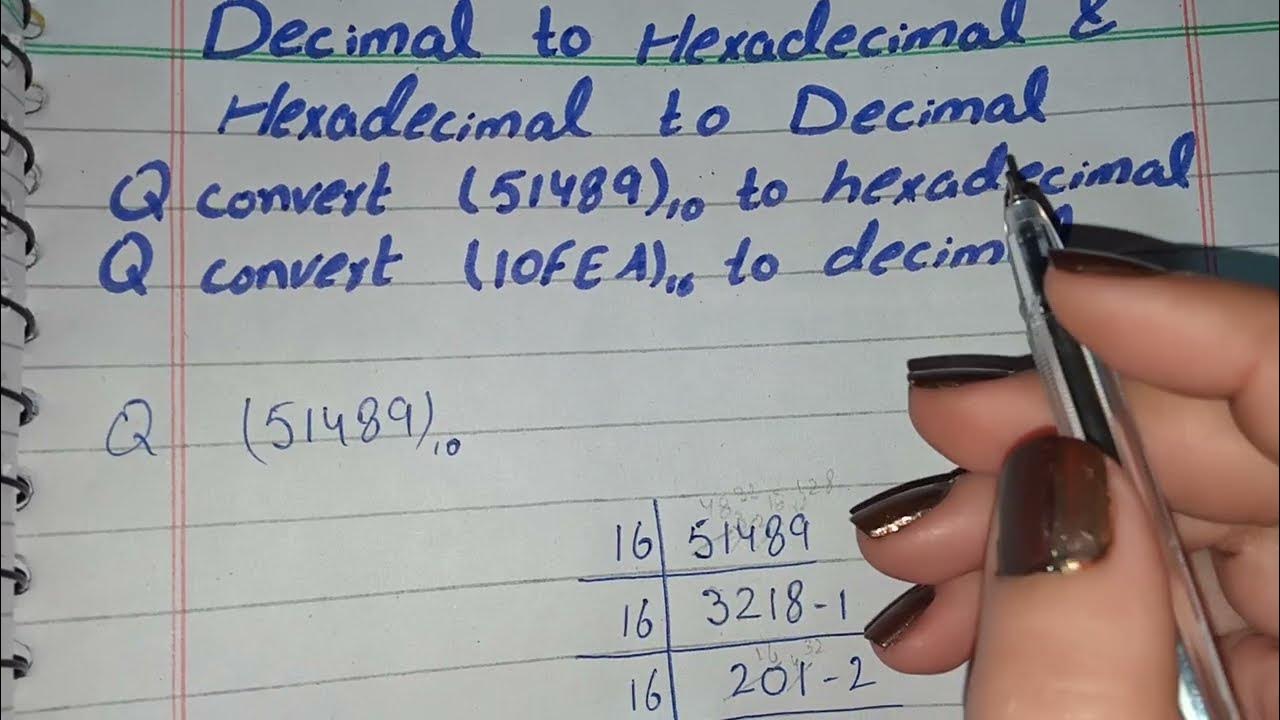 Decimal to Hexadecimal &
Hexadecimal to Decimal
Q convert (51489)₁₀ to hexadecimal
Q convert (10FEA)₁₆ to decim
Q (51489)₁₀
16 51489
16 3218-1
16 201-2